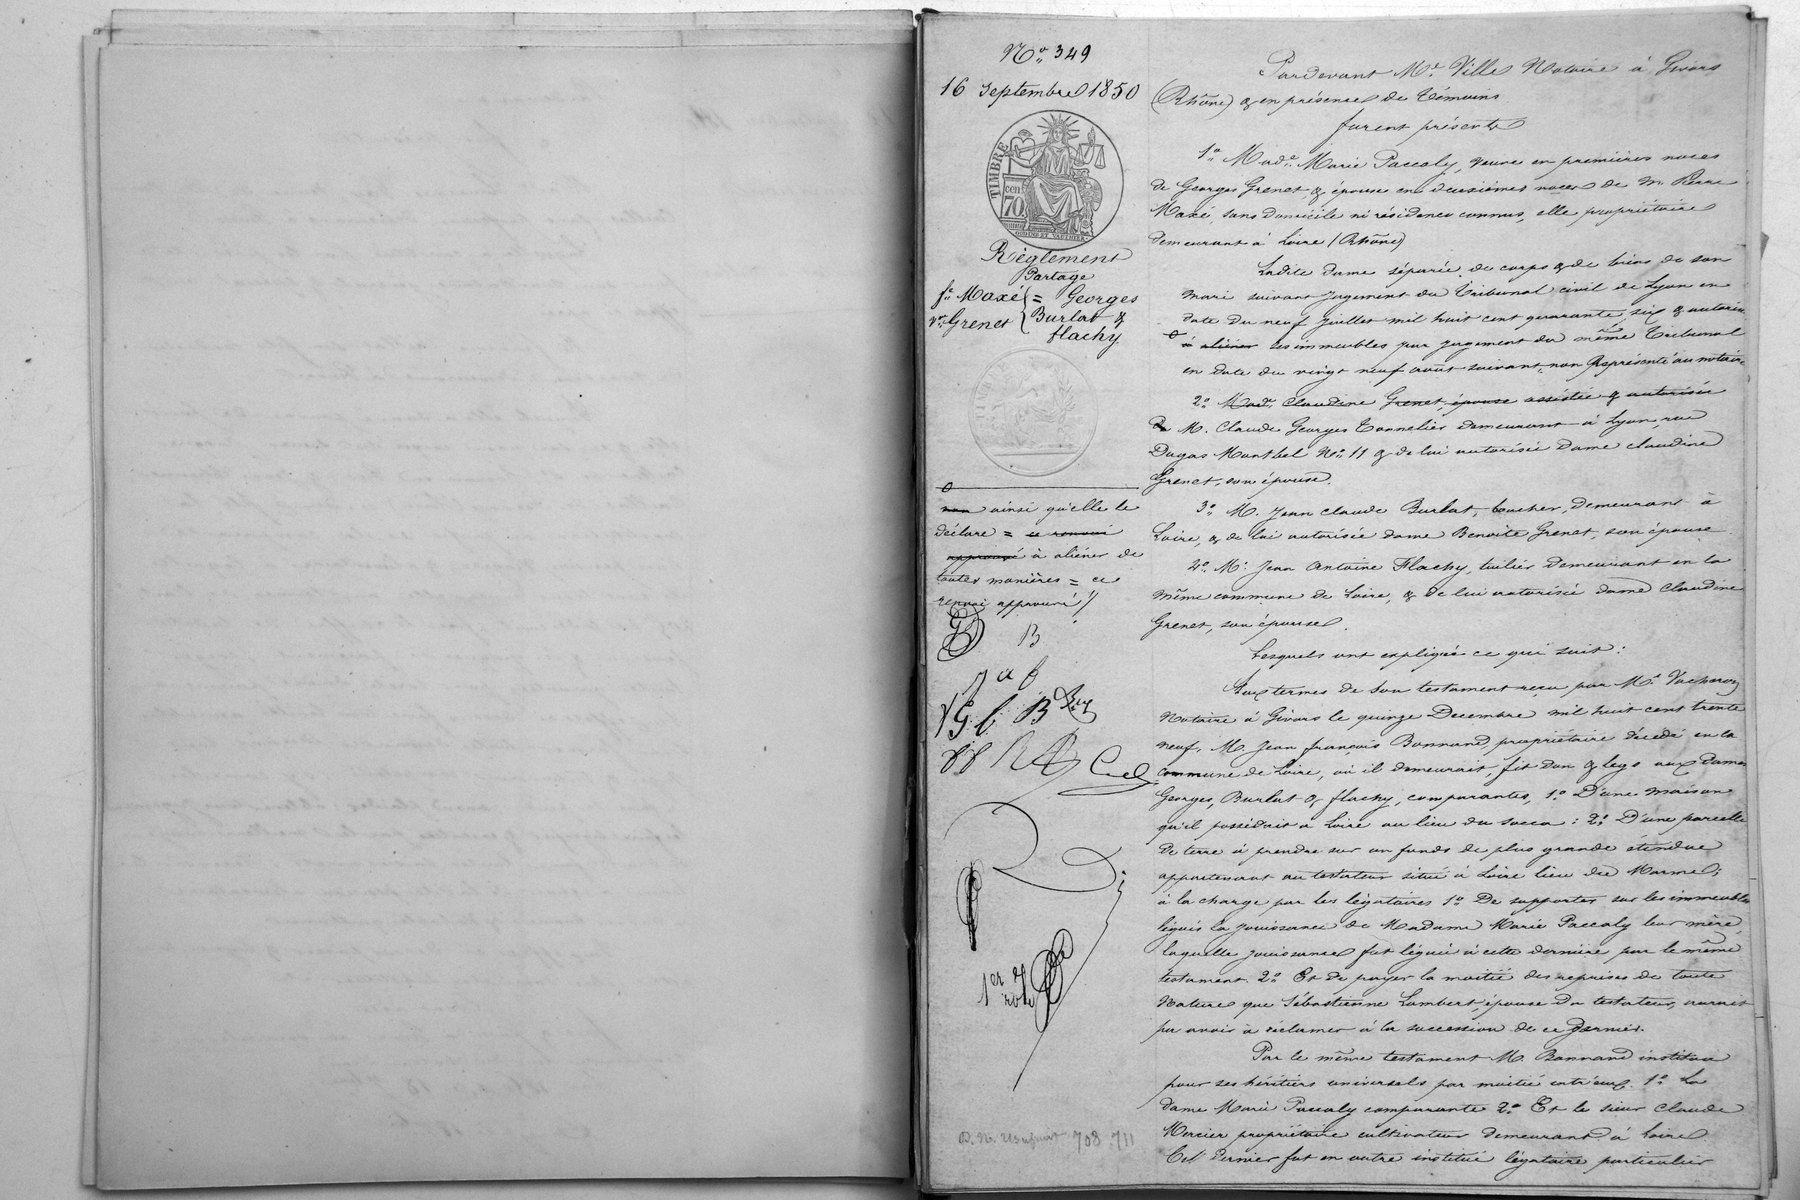 No. 349
16 Septembre 1850
TIMBRE
70 cen
Règlement
Partage
fe. Maxé = Georges
ve. Grenet Burlat &
flachy
non ainsi qu'elle le
déclare = ce renvoi
approuvé à aliéner de
toutes manières = ce
renvoi approuvé //
B
J a f
G C B
1er rôle
708 711
Pardevant Me. Ville Notaire à Givors
(Rhône) & en présence de témoins
furent présents
1o. Made. Marie Paccaly, veuve en premières noces
de Georges Grenet, & épouse en deuxièmes noces de M. Pierre
Maxé, sans domicile ni résidence connus, elle propriétaire
demeurant à Loire (Rhône)
Ladite dame séparée de corps & de biens de son
mari suivant jugement du Tribunal civil de Lyon en
date du neuf juillet mil huit cent quarante six & autorisée
à aliéner ses immeubles par jugement du même Tribunal
en date du vingt neuf août suivant, non représenté au notaire
2o. Made. Claudine Grenet, épouse assistée & autorisée
de M. Claude Georges Tonnelier demeurant à Lyon, rue
Dugas Montbel No. 11 & de lui autorisée Dame Claudine
Grenet, son épouse.
3o. M. Jean Claude Burlat, cocher, demeurant à
Loire, & de lui autorisée dame Benoîte Grenet, son épouse
4o. M. Jean Antoine Flachy, tuilier demeurant en la
même commune de Loire, & de lui autorisée dame Claudine
Grenet, son épouse.
Lesquels ont expliqué ce qui suit :
Aux termes de son testament reçu par Me. Vacheron
Notaire à Givors le quinze Decembre mil huit cent trente
neuf, M. Jean François Bonnand, propriétaire décédé en la
commune de Loire, où il demeurait, fit don & legs aux dames
Georges, Burlat & flachy, comparantes, 1o. D'une maison
qu'il possédait à Loire au lieu du socca : 2o. D'une parcelle
de terre à prendre sur un fonds de plus grande étendue
appartenant au testateur situé à Loire lieu du Mornel;
à la charge par les légataires 1o. De supporter sur les immeubles
légués la jouissance de Madame Marie Paccaly leur mère,
laquelle jouissance fut léguée à cette dernière par le même
testament. 2o. Et de payer la moitié des reprises de toute
nature que Sébastienne Lambert, épouse du testateur, aurait
pu avoir à réclamer à la succession de ce dernier.
Par le même testament M. Bonnand institua
pour ses héritiers universels par moitié entr'eux 1o. La
dame Marie Paccaly comparante 2o. Et le sieur Claude
Mercier propriétaire cultivateur demeurant à Loire
Ce dernier fut en outre institué légataire particulier